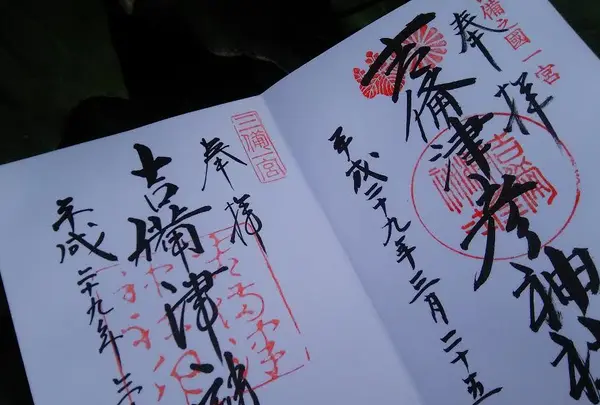 備之國一宮
奉拝
吉備津彦神社
平成二十九年三月二十五
三備宮
奉拝
吉備津神
平成二十九年三